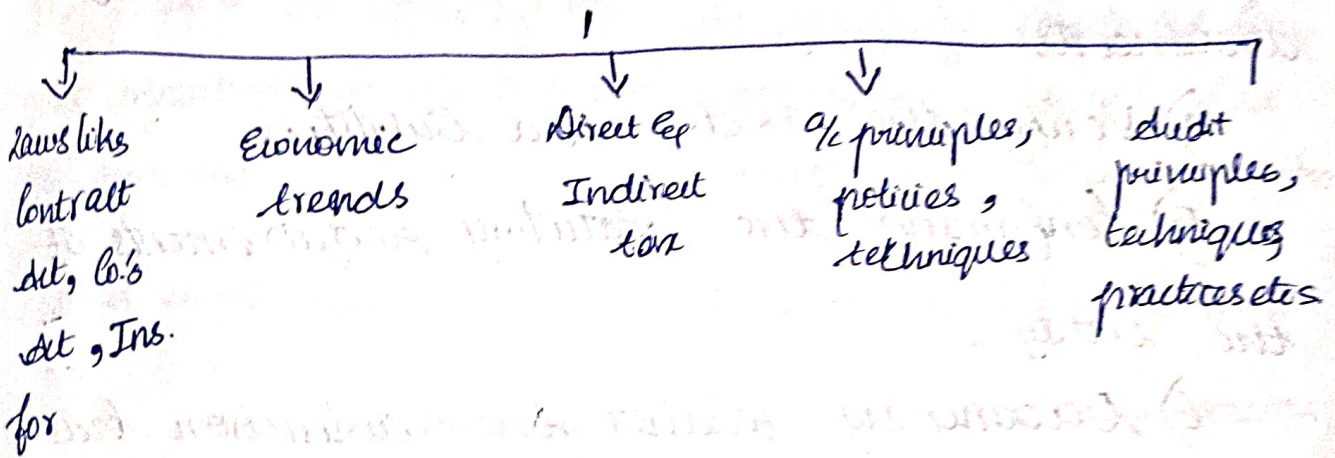 Laws like
Contract
Act, Co.'s
Act, Ins.
for
Economic
trends
Direct &
Indirect
tax
a/c principles,
policies,
techniques
Audit
principles,
techniques,
practices etc.